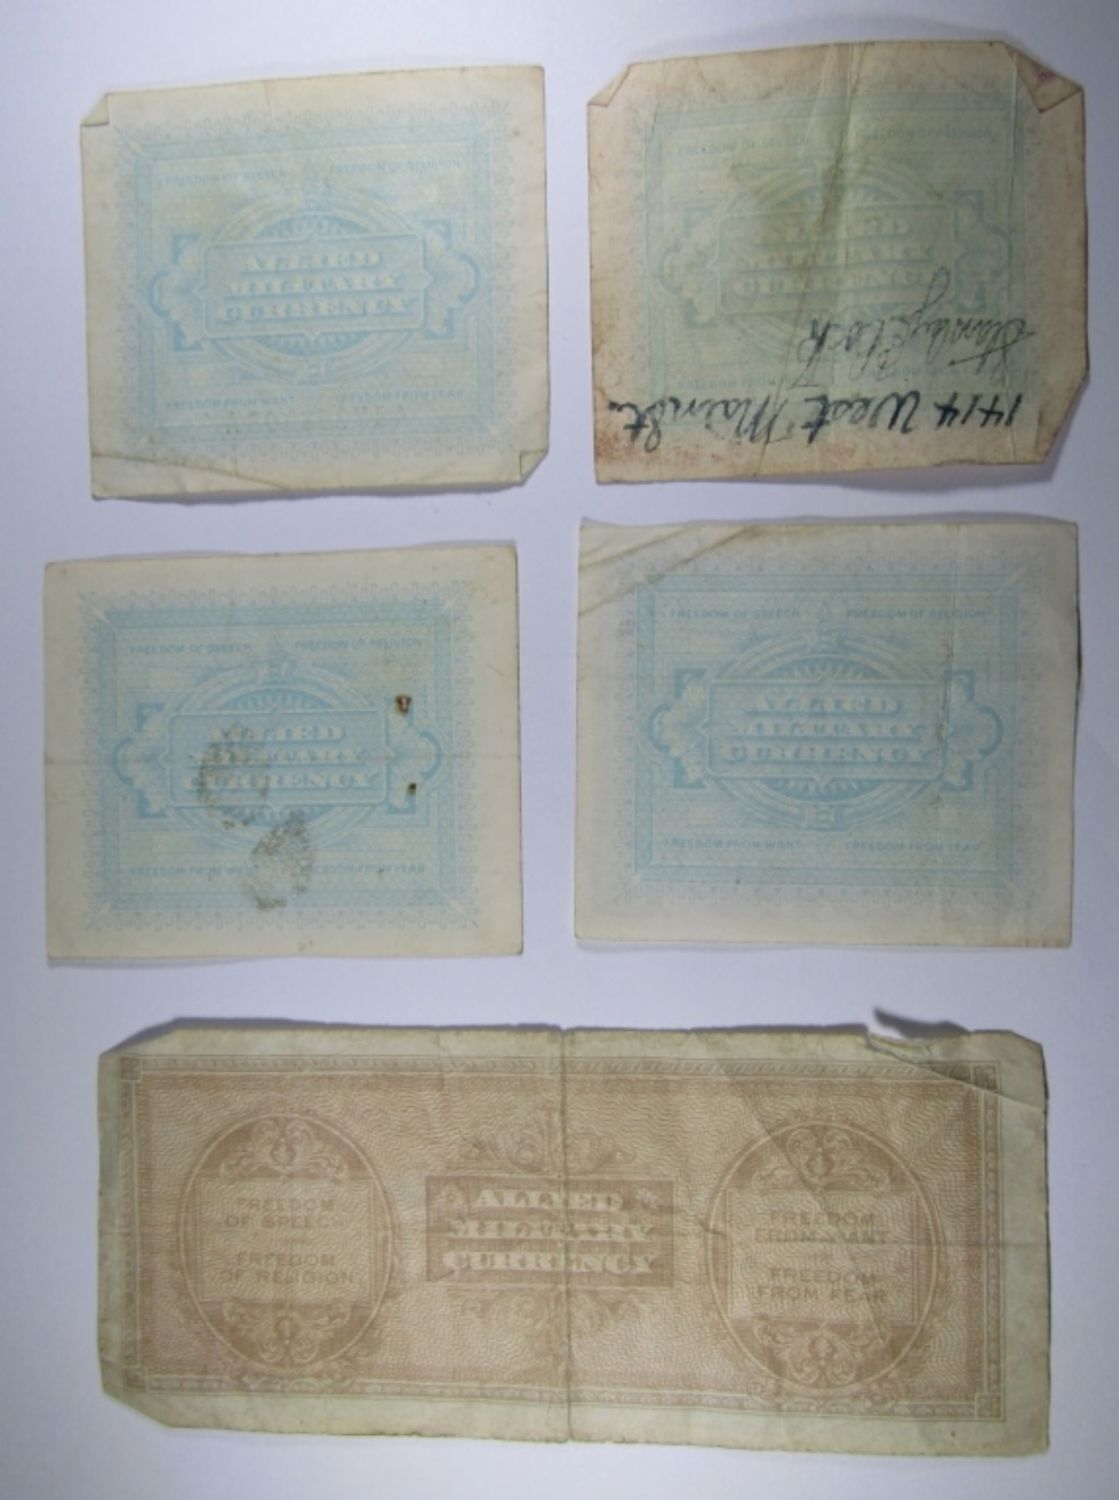 FREEDOM OF SPEECH FREEDOM OF RELIGION
ALLIED
MILITARY
CURRENCY
FREEDOM FROM WANT FREEDOM FROM FEAR
FREEDOM OF SPEECH FREEDOM OF RELIGION
ALLIED
MILITARY
CURRENCY
FREEDOM FROM
Stanley
1414 West Main St.
FREEDOM OF SPEECH FREEDOM OF RELIGION
ALLIED
MILITARY
CURRENCY
FREEDOM FROM WANT FREEDOM FROM FEAR
FREEDOM OF SPEECH FREEDOM OF RELIGION
ALLIED
MILITARY
CURRENCY
FREEDOM FROM WANT FREEDOM FROM FEAR
FREEDOM
OF SPEECH
FREEDOM
OF RELIGION
ALLIED
MILITARY
CURRENCY
FREEDOM
FROM WANT
FREEDOM
FROM FEAR